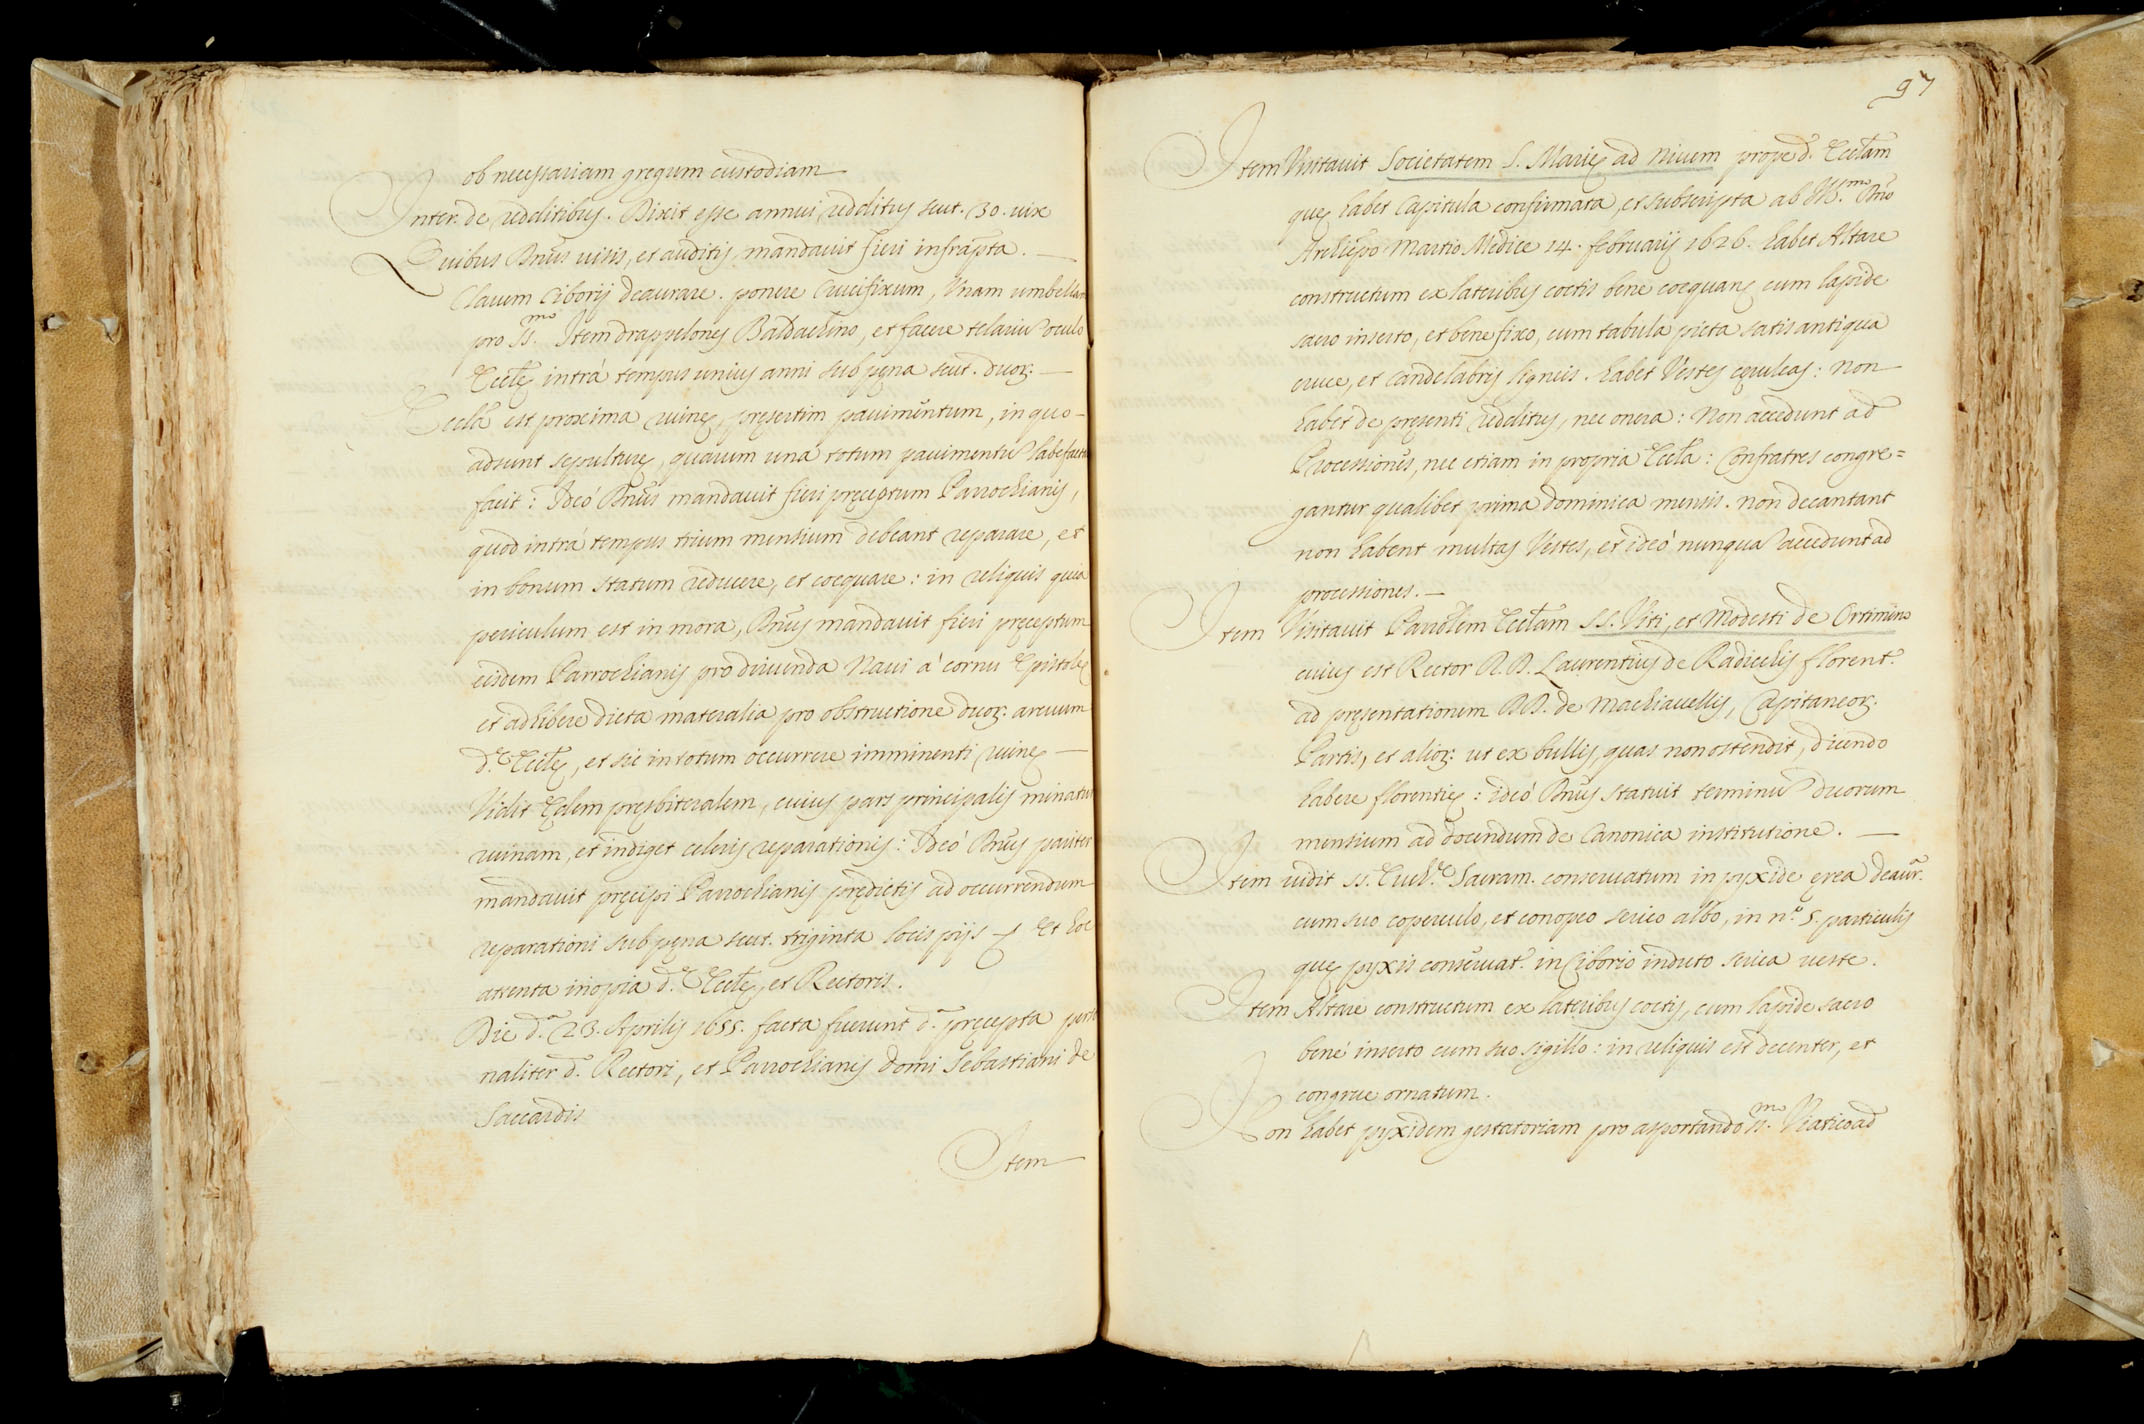 ob necessariam gregum custodiam
Inter. de redditibus. Dixit esse annui redditus scut. 30. vix
Quibus Dnus visis, et auditis, mandavit fieri infrapta.
Clavem Ciborij deaurare. ponere Crucifixum, Unam umbellam
pro SS.mo Item drappelones Baldachino, et facere telariu oculo
Eccle intrà tempus unius anni sub pena scut. duor:
Eccla est proxima ruine, presertim pavimentum, in quo-
adsunt sepulture, quarum una totum pavimentu labefacta
facit: Ideò Dnus mandavit fieri preceptum Parrochianis,
quod intrà tempus trium mensium debeant reparare, et
in bonum statum reducere, et coequare: in reliquis quia
periculum est in mora, Dnus mandavit fieri preceptum
eisdem Parrochianis pro diruenda Navi à cornu Epistole
et adhibere dicta materalia pro obstructione duor: arcuum
d.e Eccle, et sic in totum occurrere imminenti ruine
Vidit Edem presbiteralem, cuius pars principalis minatur
ruinam, et indiget celeris reparationis: Ideò Dnus pariter
mandavit precipi Parrochianis predictis ad occurrendum
reparationi sub pena scut. triginta locis pijs Et hoc
attenta inopia d.e Eccle, et Rectoris.
Die d.a 23. Aprilis 1655. facta fuerunt d.a precepta perso
naliter d.o Rectori, et Parrochianis domi Sebastiani de
Saccardis
Item
97
Item Visitavit Societatem S. Marie ad Nivem prope d. Ecclam
que habet Capitula confirmata, et subscripta ab Ill.mo Dno
Archiepo Martio Medice 14. februarij 1626. habet Altare
constructum ex lateribus coctis bene coequans cum lapide
sacro inserto, et bene fixo, cum tabula picta satis antiqua
cruce, et candelabris ligneis. habet Vestes ceruleas: non
habet de presenti redditus, nec onera: Non accedunt ad
Processiones, nec etiam in propria Eccla: Confratres congre=
gantur qualibet prima dominica mensis. non decantant
non habent multas Vestes, et ideò nunqua accedunt ad
processiones.
Item Visitavit Parrolem Ecclam SS. Viti, et Modesti de Ortimino
cuius est Rector R. D. Laurentius de Radiculis florent.
ad presentationem DD. de Machiavellis, Capitaneor:
Partis, et alior: ut ex bullis, quas non ostendit, dicendo
habere florentie: ideò Dnus statuit terminu duorum
mensium ad docendum de Canonica institutione.
Item vidit SS. Euch.e Sacram. conservatum in pyxide erea deaur.
cum suo coperculo, et conopeo serico albo, in n.o 5. particulis
que pyxis conservat. in Ciborio induto serica veste.
Item Altare constructum ex lateribus coctis, cum lapide sacro
bené inserto cum suo sigillo: in reliquis est decenter, et
congrue ornatum.
Non habet pyxidem gestatoriam pro asportando SS.mo Viatico ad